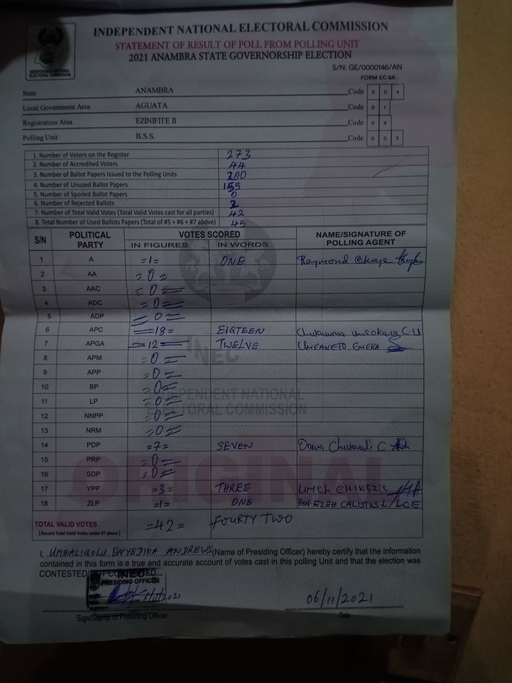 INDEPENDENT NATIONAL ELECTORAL COMMISSION
STATEMENT OF RESULT OF POLL FROM POLLING UNIT
2021 ANAMBRA STATE GOVERNORSHIP ELECTION
S/N: GE/0000146/AN
FORM EC 8A
State ANAMBRA Code 0 0 4
Local Government Area AGUATA Code 0 1
Registration Area EZINIFITE II Code
Polling Unit B.S.S. Code 0 0
1. Number of Voters on the Register 273
2. Number of Accredited Voters 44
3. Number of Ballot Papers Issued to the Polling Units 200
4. Number of Unused Ballot Papers 155
5. Number of Spoiled Ballot Papers 0
6. Number of Rejected Ballots 2
7. Number of Total Valid Votes (Total Valid Votes cast for all parties) 42
8. Total Number of Used Ballots Papers (Total of #5 + #6 + #7 above) 45
S/N POLITICAL PARTY VOTES SCORED NAME/SIGNATURE OF POLLING AGENT
IN FIGURES IN WORDS
1 A =1= ONE Raymond Okoye
2 AA =0=
3 AAC =0=
4 ADC =0=
5 ADP =0=
6 APC =18= EIGTEEN
7 APGA =12= TWELVE UMEANETO EMEKA
8 APM =0=
9 APP =0=
10 BP =0=
11 LP =0=
12 NNPP =0=
13 NRM =0=
14 PDP =7= SEVEN
15 PRP =0=
16 SDP =0=
17 YPP =3= THREE
18 ZLP =1= ONE
TOTAL VALID VOTES =42= FOURTY TWO
(Record Total Valid Votes under #7 above)
INEC
INDEPENDENT NATIONAL
ELECTORAL COMMISSION
ORIGINAL
I, ANDREWS (Name of Presiding Officer) hereby certify that the information
contained in this form is a true and accurate account of votes cast in this polling Unit and that the election was
CONTESTED/
INEC
PRESIDING OFFICER
06/11/2021
Sign/Stamp of Presiding Officer Date